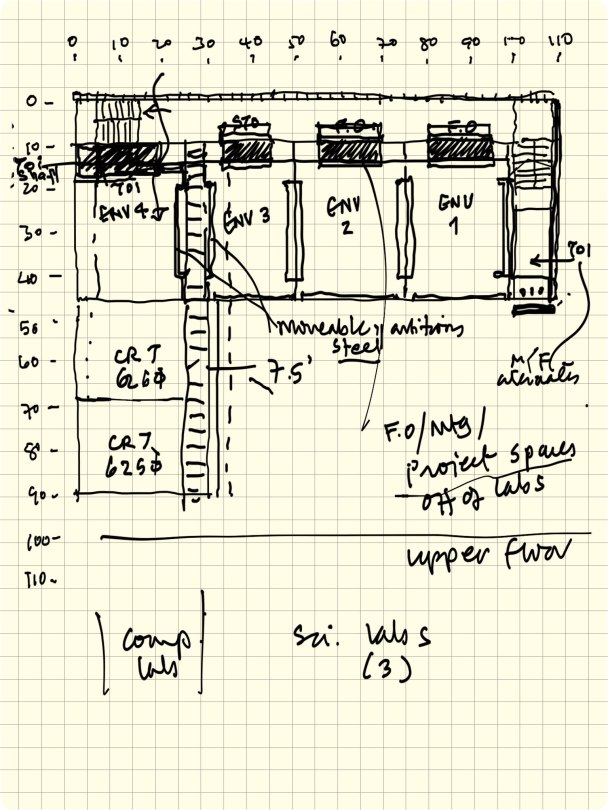 0 10 20 30 40 50 60 70 80 90 100 110
0
10
STO
F.O
F.O
20
TO1
ENV 4
ENV 3
ENV
2
ENV
1
30
40
TO1
50
moveable partitions
steel
60
CR T
7.5'
M/F
alternates
70
F.O/Mtg/
project spaces
off of labs
80
CR 7
90
100
upper floor
110
comp
labs
sci. labs
(3)